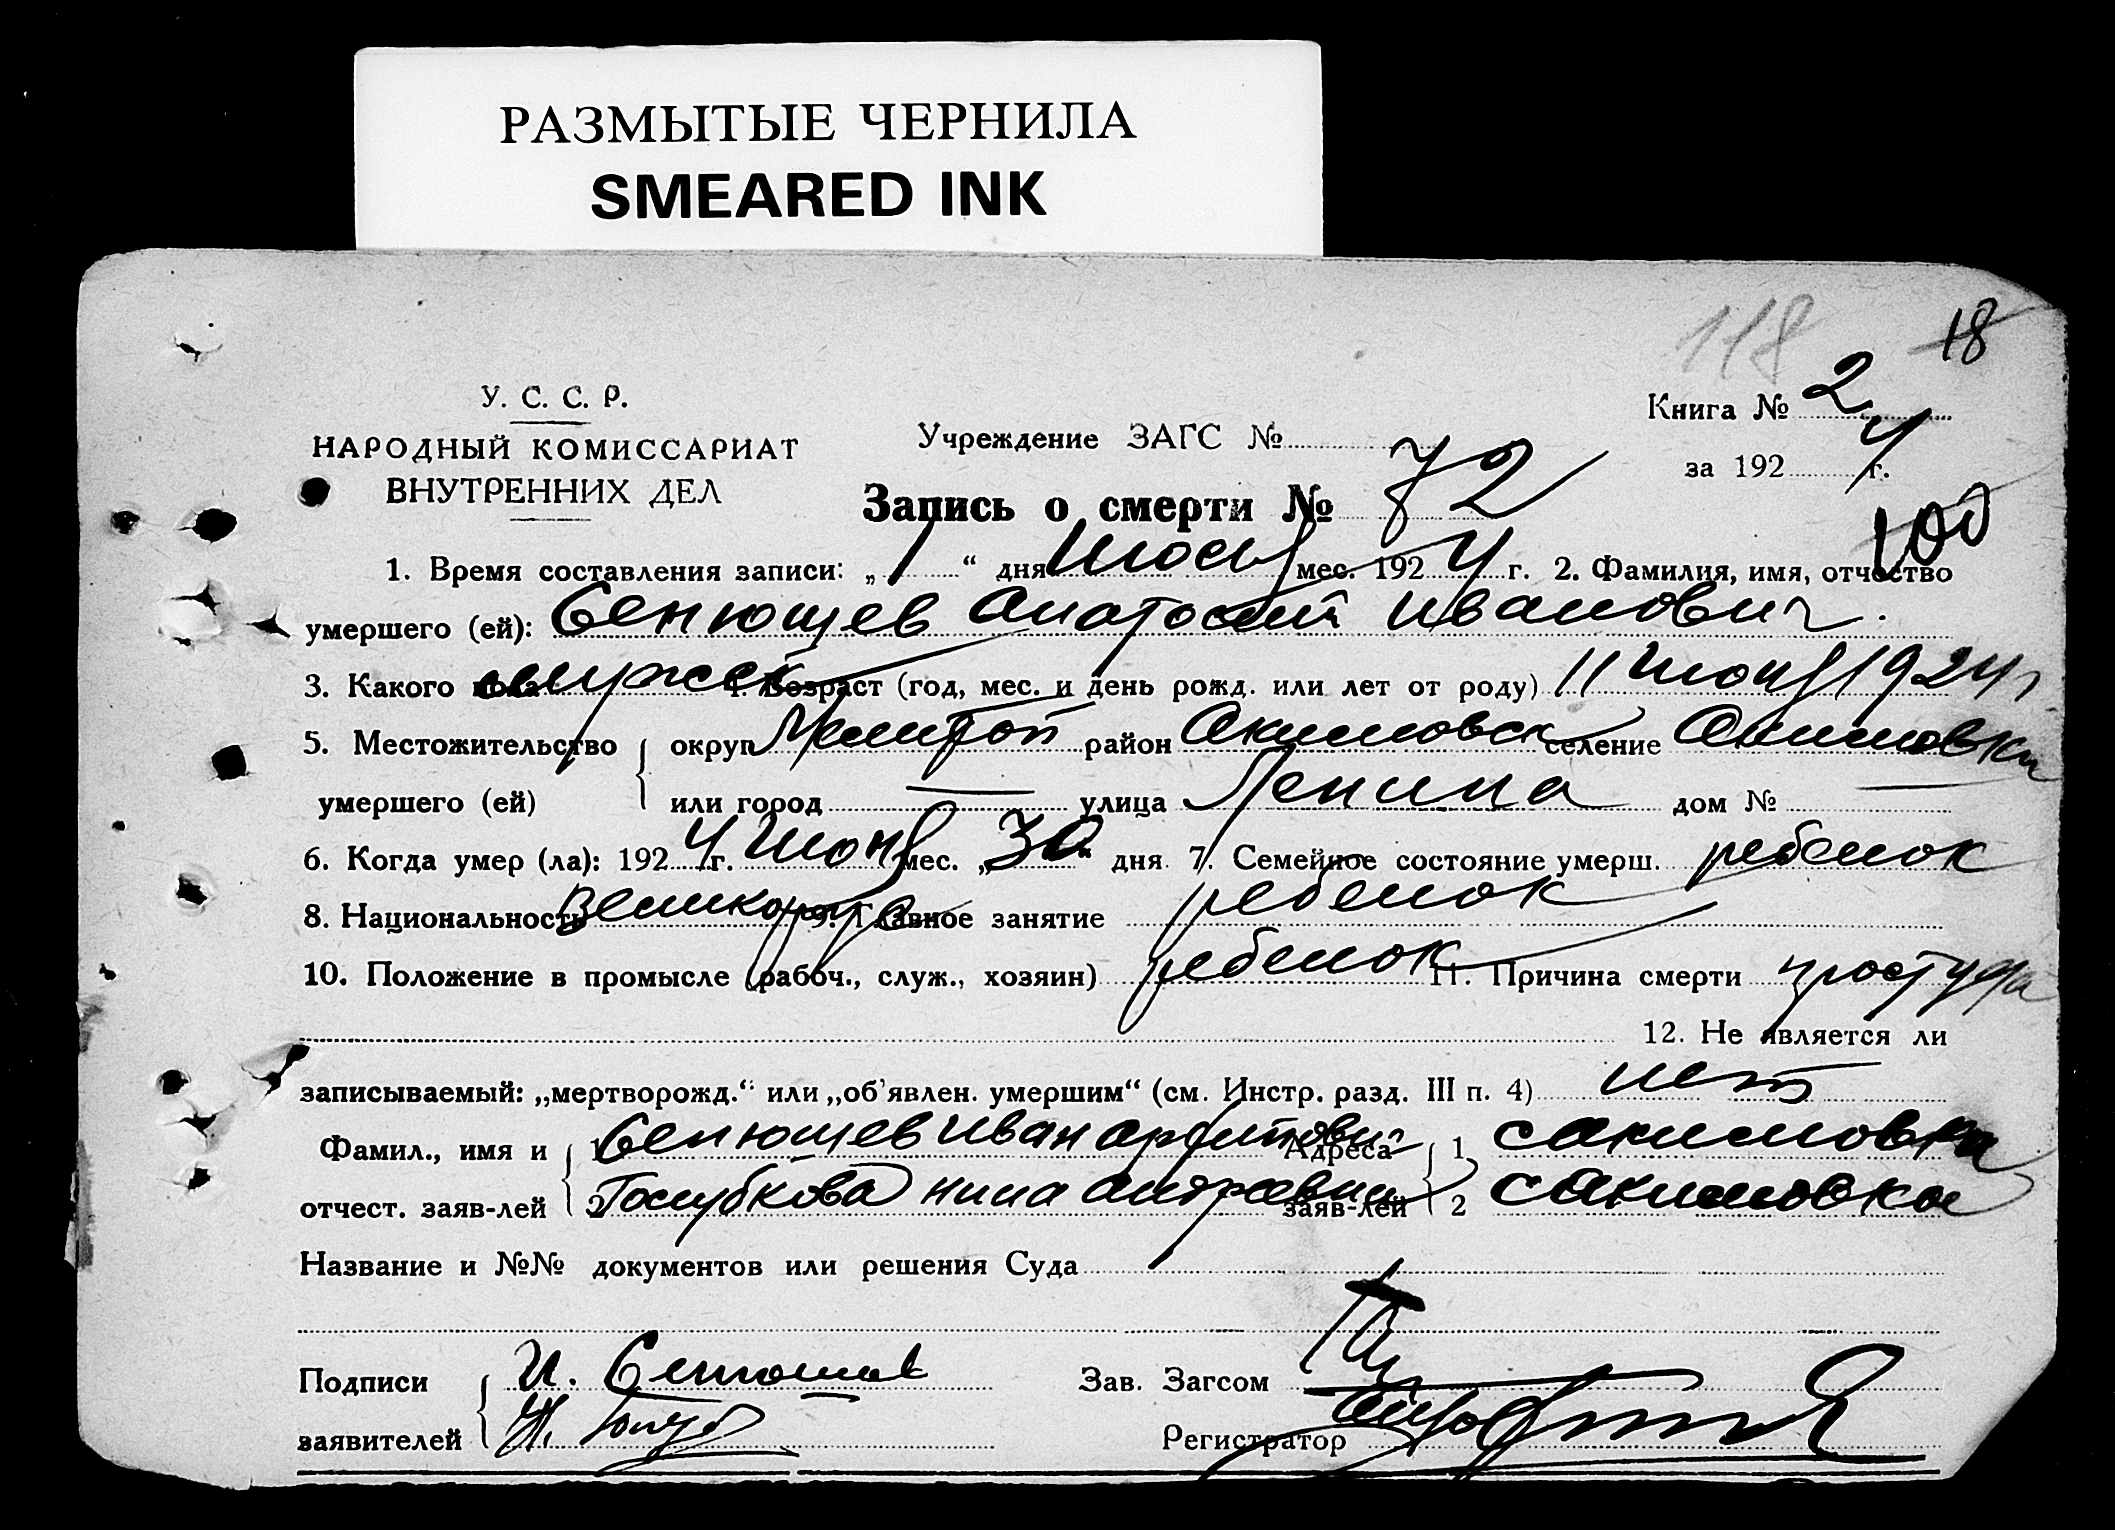 РАЗМЫТЫЕ ЧЕРНИЛА
SMEARED INK
118 18
У. С. С. Р.
НАРОДНЫЙ КОМИССАРИАТ
ВНУТРЕННИХ ДЕЛ
Учреждение ЗАГС №
Книга № 2
за 1924 г.
Запись о смерти № 72
100
1. Время составления записи: „1“ дня Июля мес. 1924 г. 2. Фамилия, имя, отчество
умершего (ей): Сенющев Анатолий Иванович.
3. Какого пола мужск 4. Возраст (год, мес. и день рожд. или лет от роду) 11 Июня 1924 г
5. Местожительство округ Мелитоп район Акимовск селение Акимовка
умершего (ей) или город — улица Ленина дом № —
6. Когда умер (ла): 1924 г. Июня мес. „30“ дня 7. Семейное состояние умерш. ребенок
8. Национальность Великорус 9. Главное занятие ребенок
10. Положение в промысле (рабоч., служ., хозяин) ребенок 11. Причина смерти простуда
12. Не является ли
записываемый: „мертворожд.“ или „об'явлен. умершим“ (см. Инстр. разд. III п. 4) нет
Фамил., имя и 1 Сенющев Иван Адреса 1. с Акимовка
отчест. заяв-лей 2 Голубкова Нина заяв-лей 2 с Акимовка
Название и №№ документов или решения Суда
Подписи И. Сенющев Зав. Загсом
заявителей Н. Голуб Регистратор